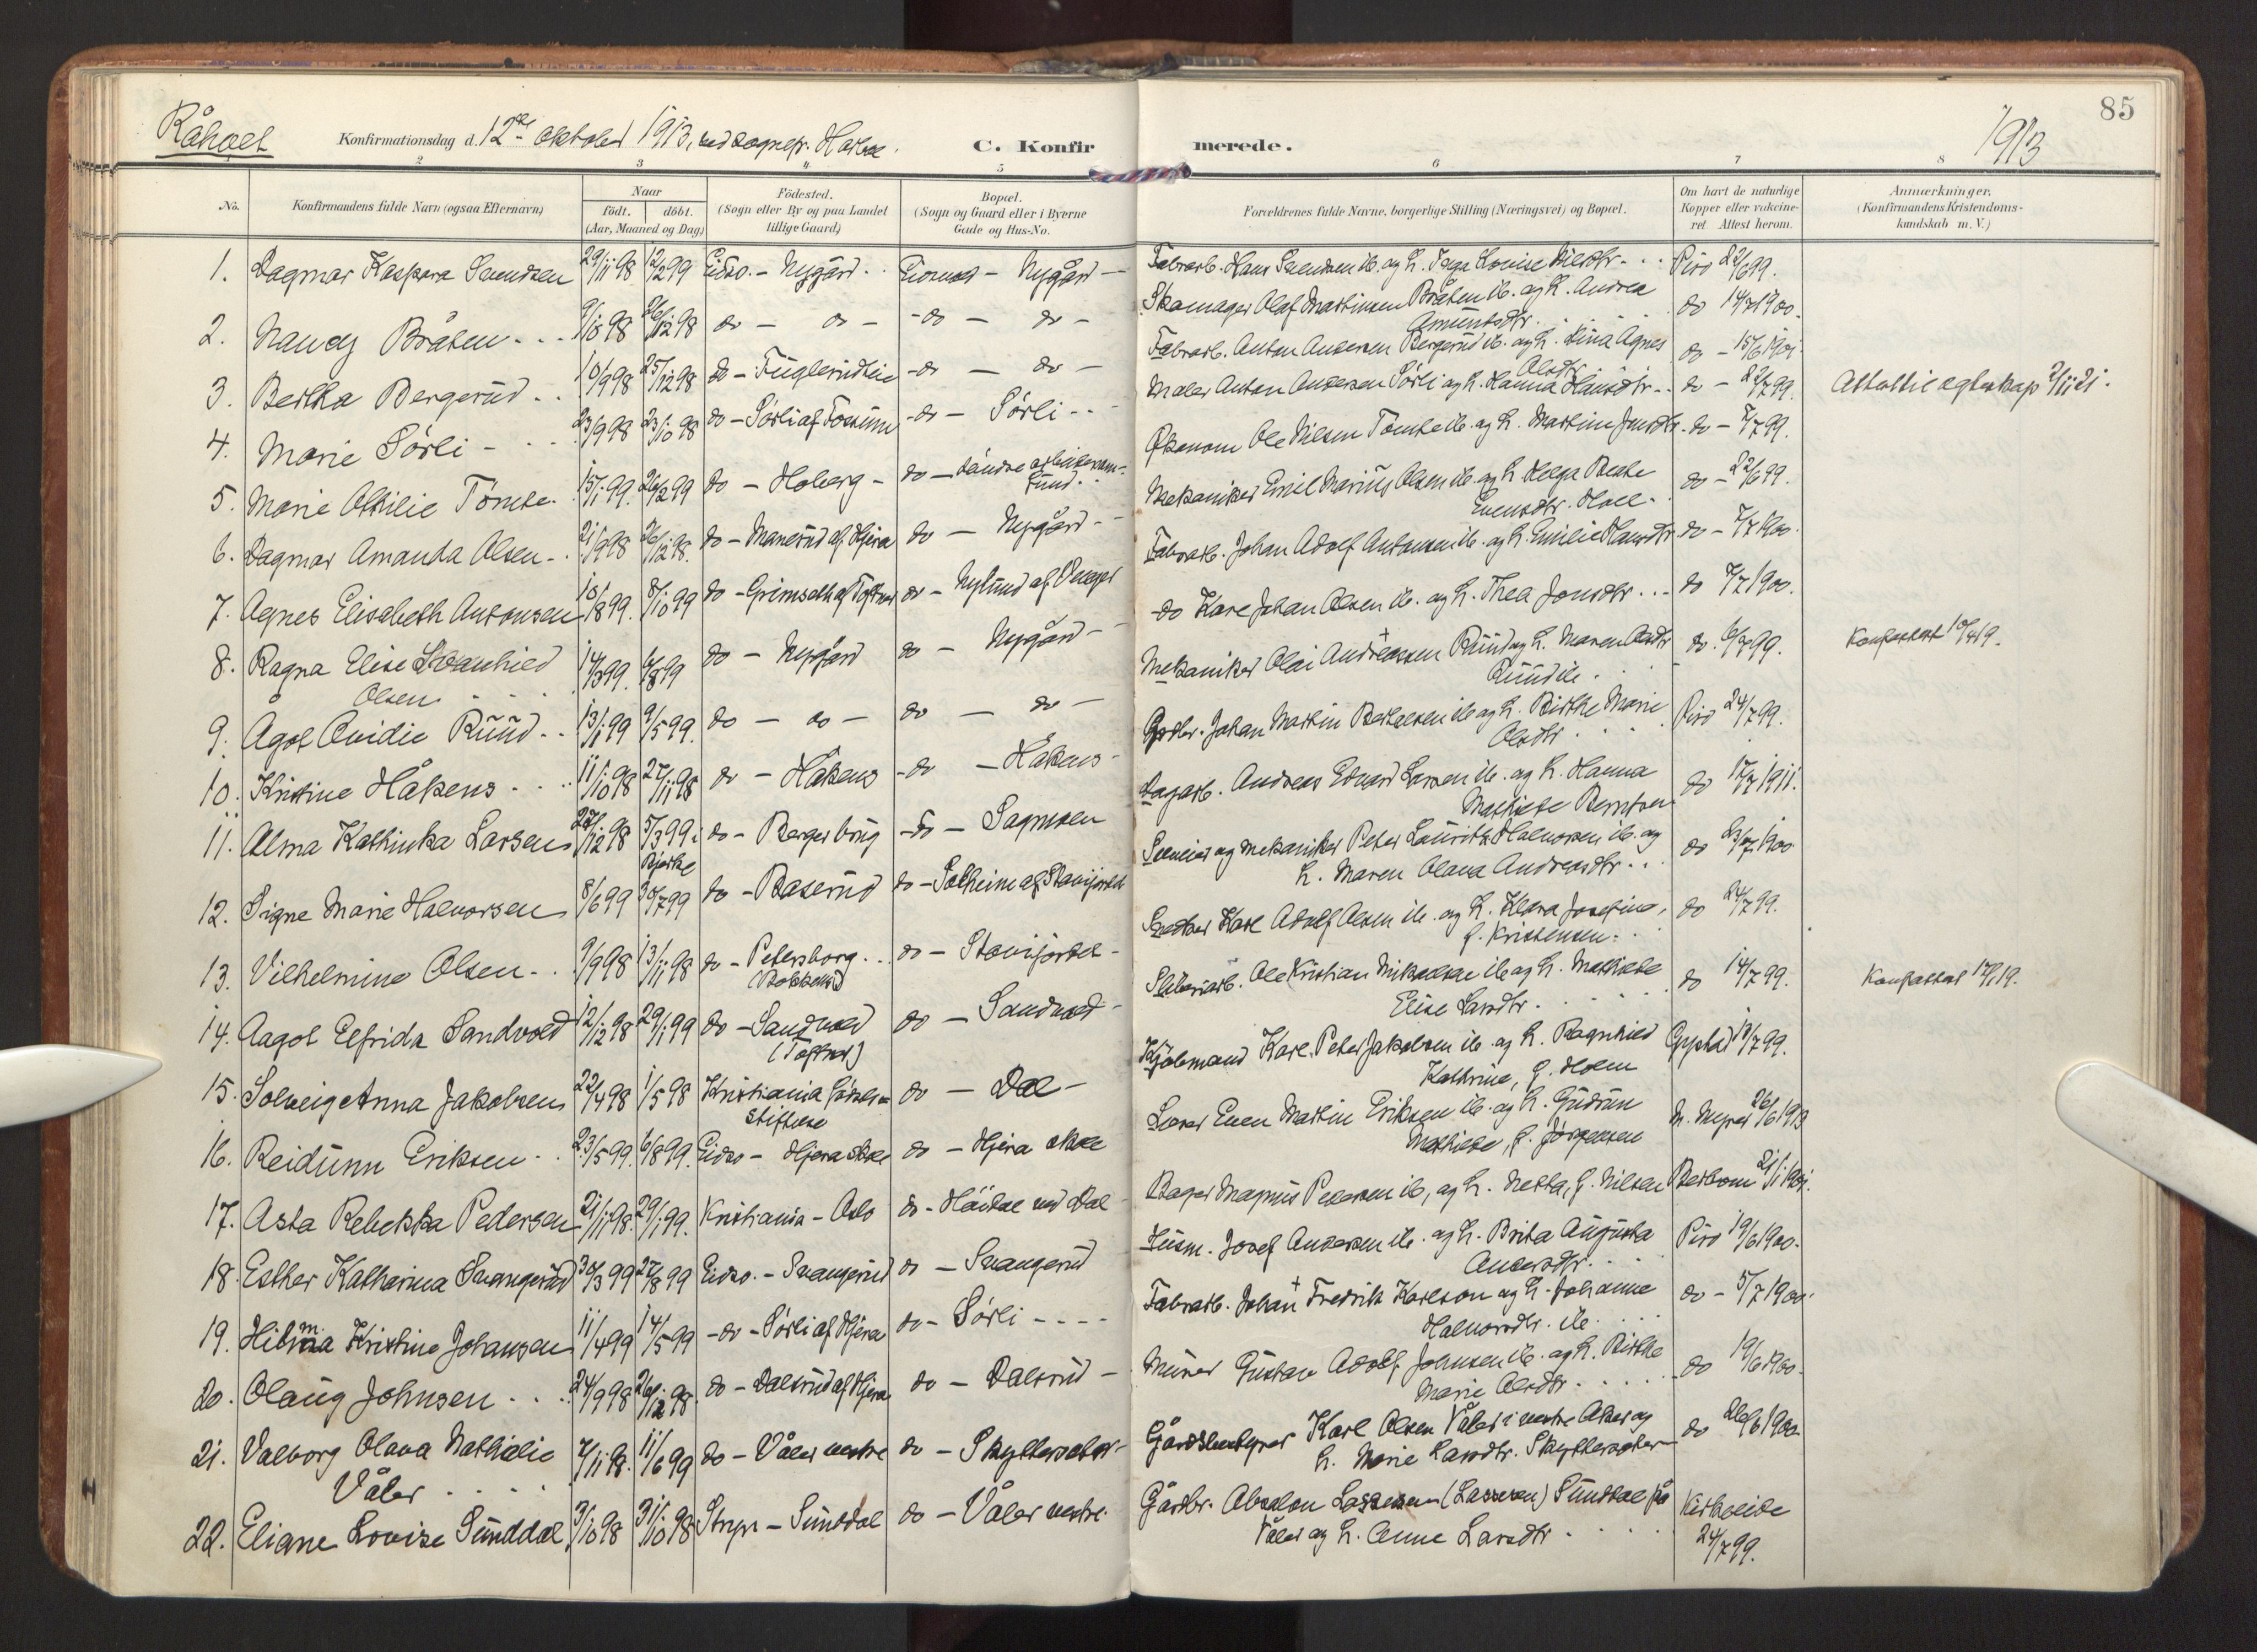 85
Råholt Konfirmationsdag d. 12te oktober 1913, ved sognepr. C. Konfirmerede. 1913
2 3 4 5 6 7 8
No. Konfirmandens fulde Navn (ogsaa Efternavn) Naar Födested. Bopæl. Forældrenes fulde Navne, borgerlige Stilling (Næringsvei) og Bopæl. Om havt de naturlige Anmærkninger.
födt. döbt. (Sogn eller By og paa Landet (Sogn og Gaard eller i Byerne Kopper eller vakcine- (Konfirmandens Kristendoms-
(Aar, Maaned og Dag) tillige Gaard) Gade og Hus-No. ret Attest herom. kundskab m. V.)
1. Dagmar Kaspara Svendsen 29/11 98 12/2 99 Eidsv. - Nygård Eidsvold - Nygård - Fabrarb. Hans Svendsen ib. og h. Lovise 22/6 99.
2. Nancy Bråten 9/10 98 26/12 98 do - do - - do - do - Skomager Olaf Martinsen Bråten ib. og h. Andrea do 14/7 1900.
Amundsdtr.
3. Bertha Bergerud 10/9 98 25/12 98 do - Fuglerudteie - do - do - Fabrarb. Anton Andersen Bergerud ib. og h. Lina Agnes do - 15/6 1901.
Olsdtr.
4. Marie Sørli - 23/9 98 23/10 98 do - Sørli af Fossum - do - Sørli - - Maler Anton Andersen Sørli og h. Hanna Hansdtr - do - 22/7 99. Attest til egteskap 2/11 21.
5. Marie Othilie Tömte 15/1 99. 26/2 99 do - Hoberg - do - Søndre Økonom Ole Nilsen Tömte ib. og h. Martine Jensdtr - do - 7/7 99.
6. Dagmar Amanda Olsen - 21/9 98 26/12 98. do - Manerud af Hjera do - Nygård - Mekaniker Emil Marius Olsen ib. og h. Helga Beate do - 22/6 99.
Evensdtr. Holl.
7. Agnes Elisabeth Antonsen 10/8 99. 8/10 99 do - do - Nylund af Fabrarb. Johan Adolf Antonsen ib. og h. Emilie Hansdtr do - 7/7 1900.
8. Ragna Elise Svanhild 14/3 99. 6/8 99 do - Nygård do - Nygård - do Karl Johan Olsen ib. og h. Thea Jonsdtr. - do 7/7 1900. Konfattest 19.
Olsen
9. Ågot Ovidie Ruud 13/1 99 9/5 99. do - do - do - do - Mekaniker Olai Andreassen Ruud og h. Maren do. 6/7 99.
Ruud ib.
10. Kristine Håkens 11/10 98 27/11 98 do - Håkens - do - Håkens - Grdbr. Johan Martin Bertelsen ib. og h. Birthe Marie 24/7 99.
Olsdtr
11. Alma Kathinka Larsen 27/12 98 5/3 99 i do - Berger brug - do - Sagmoen Dagarb. Andreas Edvard Larsen ib. og h. Hanna do 17/7 1911.
Bjerke Mathilde Berntsen
12. Signe Marie Halvorsen 8/6 99 30/7 99 do - Baserud do - Solheim af Stavifjordet Sæleier og mekaniker Peter Lauritz Halvorsen ib. og do 1900
h. Maren Olava Andreasdtr.
13. Vilhelmine Olsen - 9/9 98 13/11 98 do - Petersborg do - Stavifjordet - Snedker Karl Adolf Olsen ib. og h. Klara Josefine, do 24/7 99.
(Bekkens) f. Kristensen.
14. Aagot Elfrida Sandvold 12/12 98 29/1 99 do - Sandvold do - Sandvold - Sliberiarb. Ole Kristian Mikkelsen ib. og h. Mathilde do 14/7 99. Konfattest 19.
(Tøfter) Elise Larsdtr.
15. Solveig Anna Jakobsen 22/4 98 1/5 98 Kristiania Fødsels do - Dal - Kjøbmand Karl Peter Jakobsen ib. og h. Ragnhild 18/7 99.
stiftelse Kathrine, f. Holm
16. Reidunn Eriksen - 23/5 99. 6/8 99. Eidsv. - Hjera skole do - Hjera skole Lærer Even Martin Eriksen ib. og h. Gudrun 26/6 1913
Mathilde, f. Jørgensen
17. Asta Rebekka Pedersen 21/11 98. 29/1 99. Kristiania - Oslo do - Höidal ved Dal - Bager Magnus Pedersen ib, og h. Netta, f. Nilsen 21/1 1901.
18. Esther Katharina Svangerud 30/3 99 27/8 99 Eidsv. - Svangerud do - Svangerud Husm. Josef Andersen ib. og h. Brita Augusta 19/6 1900.
Andersdtr.
19. Hilma Kristine Johansen 11/4 99 14/5 99 - do - Sørli af Hjera do - Sørli - - - - Fabrarb. Johan Fredrik Karlson og h. Johanne do - 5/7 1900.
Halvorsdtr. ib.
20. Olaug Johnsen 24/9 98 26/12 98. do - Dalsrud af Hjera do - Dalsrud - Murer Gustav Adolf Johnsen ib. og h. Birthe do 19/6 1900.
Marie Olsdtr
21. Valborg Olava Nathalie 7/11 98. 11/6 99 do - Våler vestre do - Skyttersæter - Gårdsbestyrer Karl Olsen Våler i vestre Aker og do 22/6 1900.
Våler h. Marie Larsdtr. Skyttersæter
22. Eliane Lovise Sunddal, 3/10 98 31/10 98 Stryn - Sunddal do - Våler vestre. Gårdbr. Absalon Lassesen (Lassesen) Sunddal på
Våler og h. Anne Larsdtr 24/7 99.